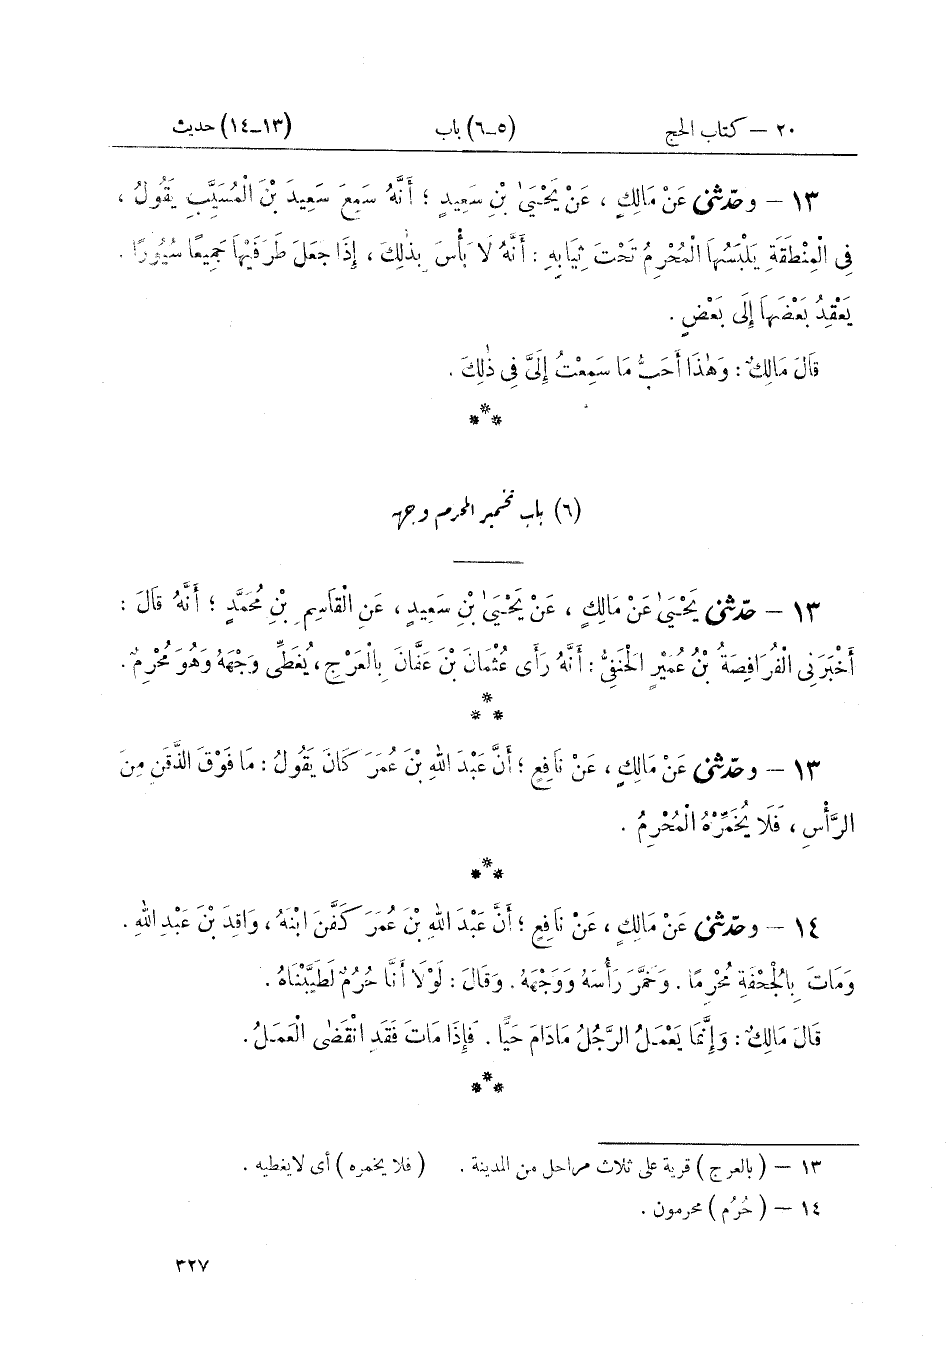 ٢٠ – كتاب الحج (٥–٦) باب (١٣–١٤) حديث
١٣ – وحدّثني عَنْ مَالِكٍ ، عَنْ يَحْيَىٰ بْنِ سَعِيدٍ ؛ أَنَّهُ سَمِعَ سَعِيدَ بْنَ الْمُسَيَّبِ يَقُولُ ،
فِي الْمِنْطَقَةِ يَلْبَسُهَا الْمُحْرِمُ تَحْتَ ثِيَابِهِ : أَنَّهُ لَا بَأْسَ بِذٰلِكَ ، إِذَا جَعَلَ طَرَفَيْهَا جَمِيعًا سُيُورًا .
يَعْقِدُ بَعْضَهَا إِلَى بَعْضٍ .
قَالَ مَالِكٌ : وَهٰذَا أَحَبُّ مَا سَمِعْتُ إِلَىَّ فِي ذٰلِكَ .
***
(٦) باب تخمير المحرم وجهه
١٣ – حدّثني يَحْيَىٰ عَنْ مَالِكٍ ، عَنْ يَحْيَىٰ بْنِ سَعِيدٍ ، عَنِ الْقَاسِمِ بْنِ مُحَمَّدٍ ؛ أَنَّهُ قَالَ :
أَخْبَرَنِي الْفُرَافِصَةُ بْنُ عُمَيْرٍ الْحَنَفِيُّ : أَنَّهُ رَأَى عُثْمَانَ بْنَ عَفَّانَ بِالْعَرْجِ ، يُغَطِّي وَجْهَهُ وَهُوَ مُحْرِمٌ .
***
١٣ – وحدّثني عَنْ مَالِكٍ ، عَنْ نَافِعٍ ؛ أَنَّ عَبْدَ اللهِ بْنَ عُمَرَ كَانَ يَقُولُ : مَا فَوْقَ الذَّقَنِ مِنَ
الرَّأْسِ ، فَلَا يُخَمِّرْهُ الْمُحْرِمُ .
***
١٤ – وحدّثني عَنْ مَالِكٍ ، عَنْ نَافِعٍ ؛ أَنَّ عَبْدَ اللهِ بْنَ عُمَرَ كَفَّنَ ابْنَهُ ، وَاقِدَ بْنَ عَبْدِ اللهِ .
وَمَاتَ بِالْجُحْفَةِ مُحْرِمًا . وَخَمَّرَ رَأْسَهُ وَوَجْهَهُ . وَقَالَ : لَوْلَا أَنَّا حُرُمٌ لَطَيَّبْنَاهُ .
قَالَ مَالِكٌ : وَإِنَّمَا يَعْمَلُ الرَّجُلُ مَادَامَ حَيًّا . فَإِذَا مَاتَ فَقَدِ انْقَضَى الْعَمَلُ .
***
١٣ – ( بالعرج ) قرية على ثلاث مراحل من المدينة . ( فلا يخمره ) أى لا يغطيه .
١٤ – ( حُرُم ) محرمون .
٣٢٧